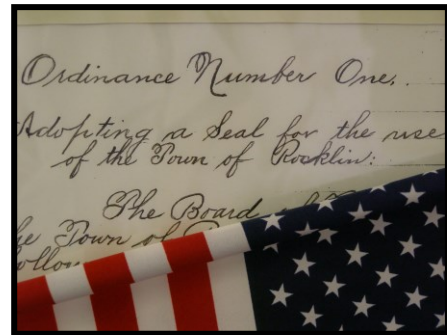 Ordinance Number One.
Adopting a Seal for the use
of the Town of Rocklin:
The Board
he Town of
ollow